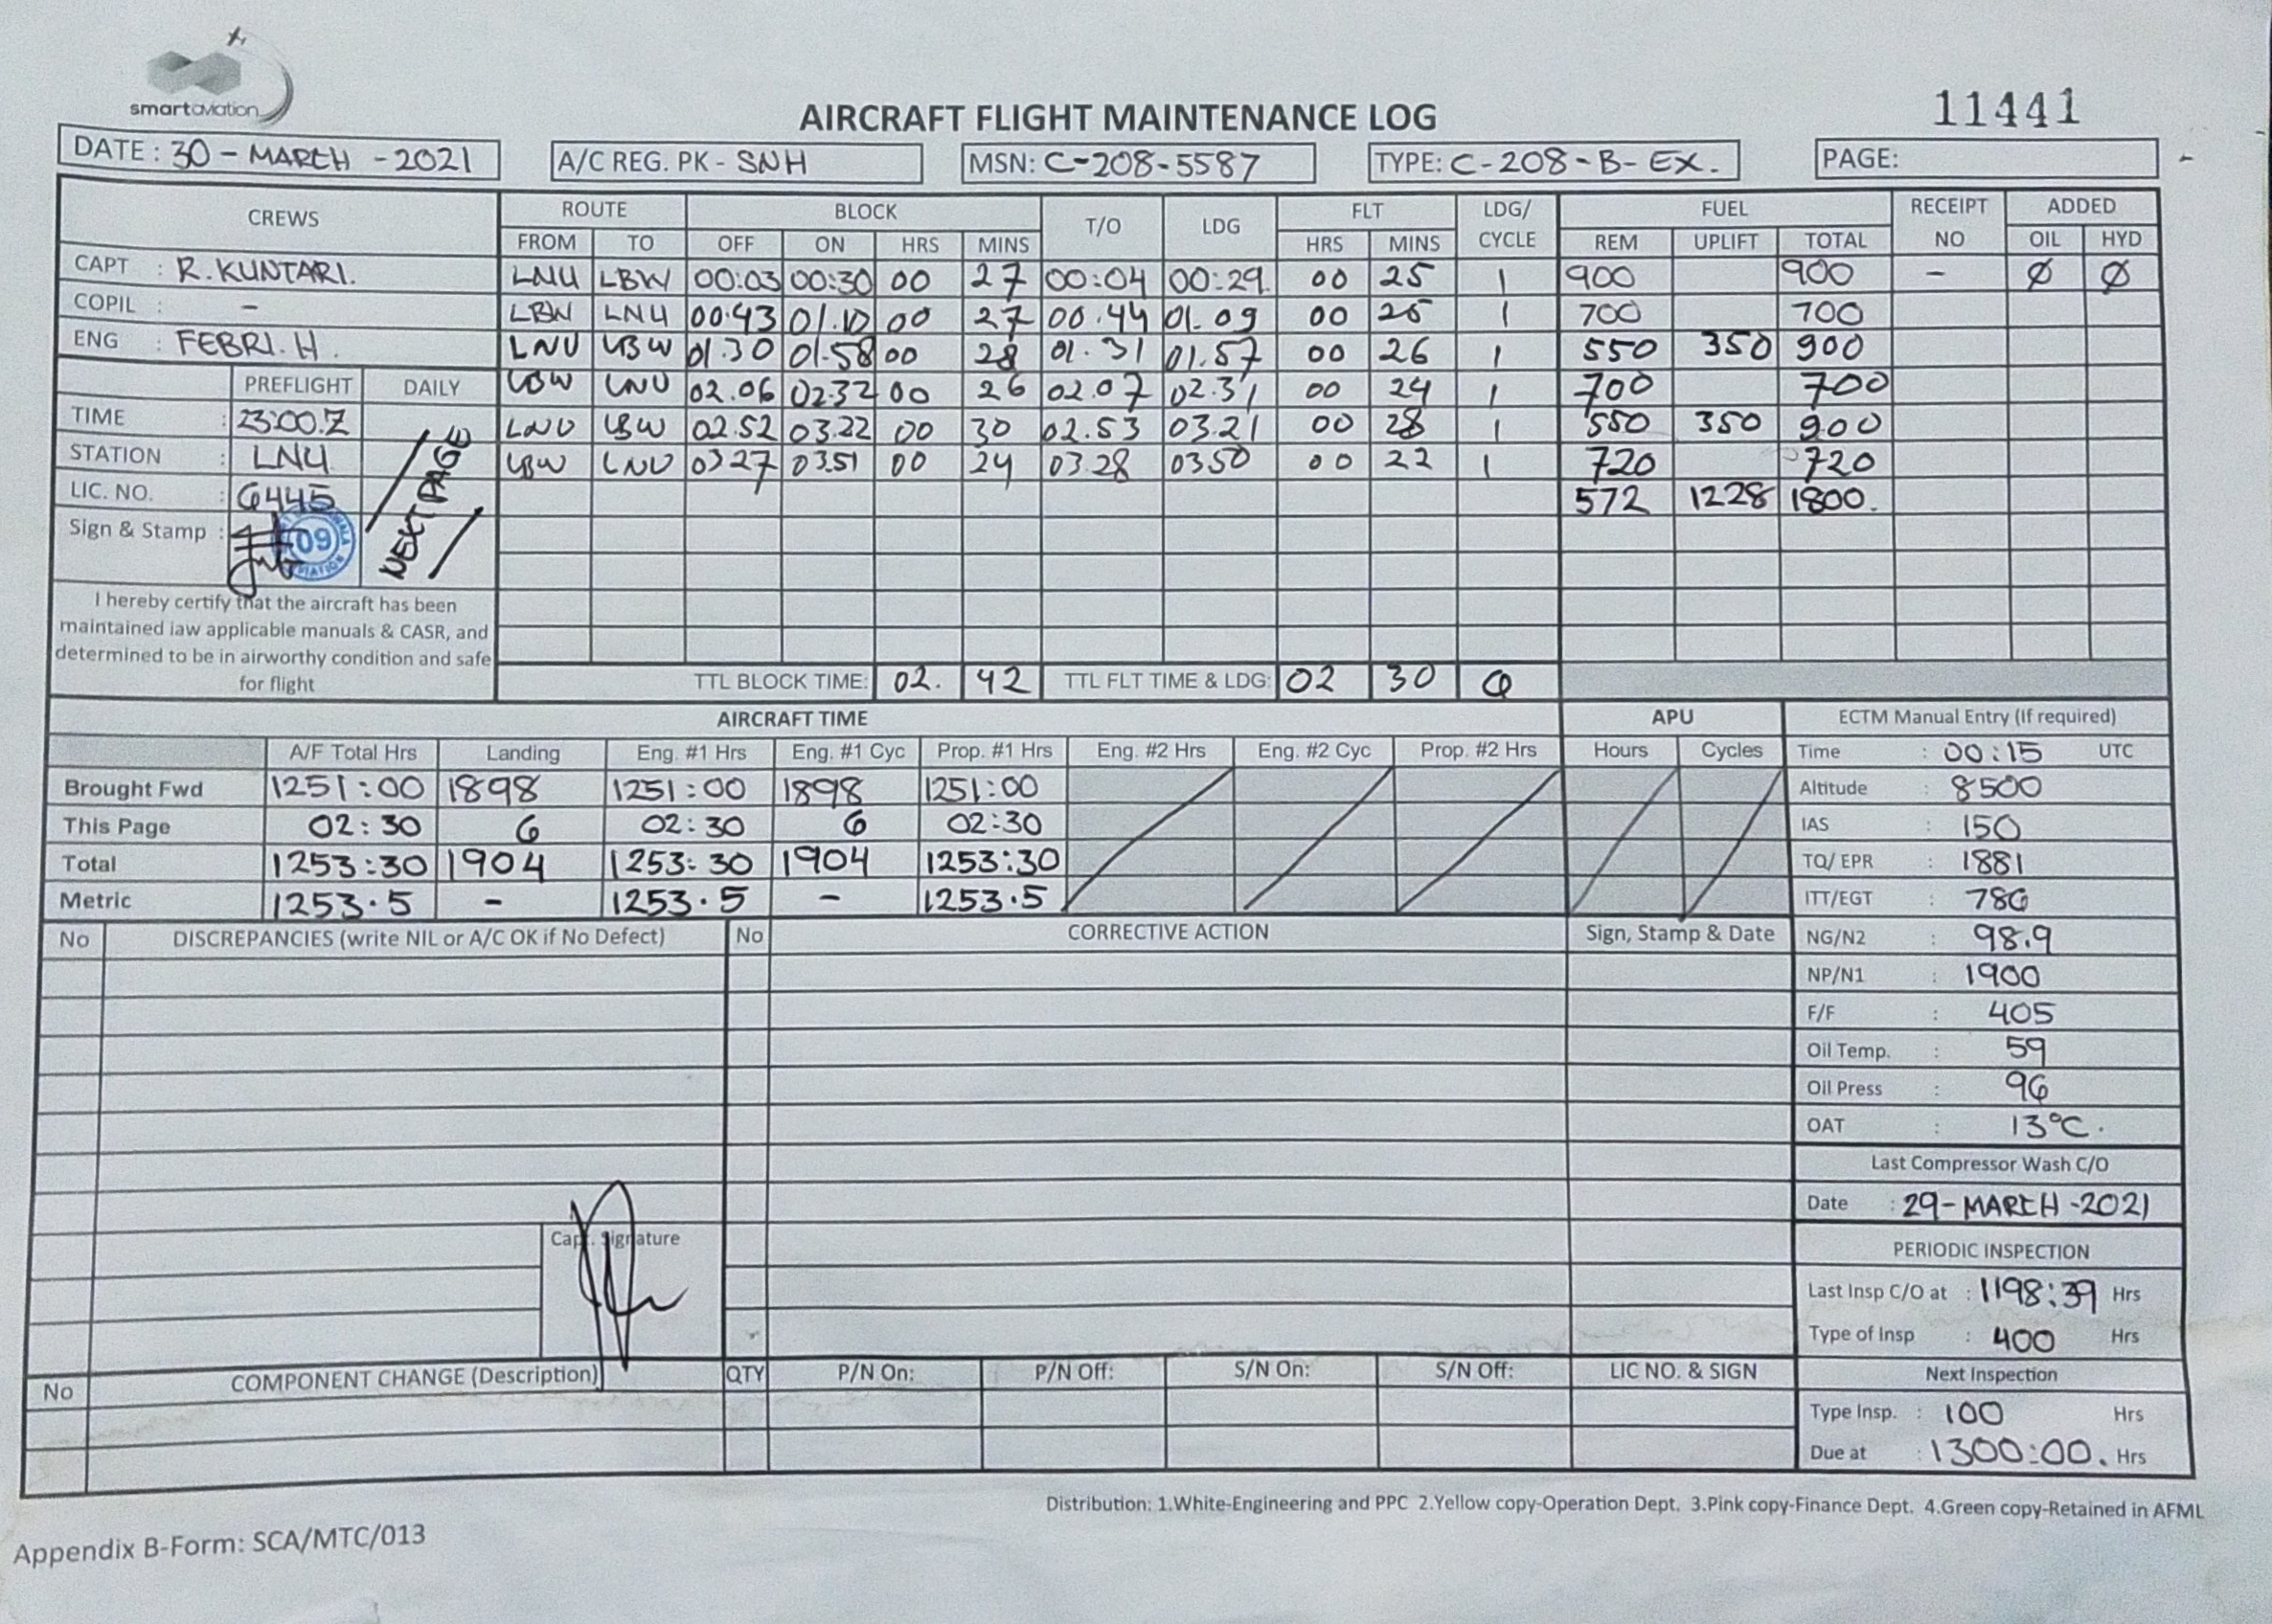 smartaviation
AIRCRAFT FLIGHT MAINTENANCE LOG
11441
DATE : 30 - MARCH - 2021 A/C REG. PK - SNH MSN: C-208-5587 TYPE: C-208-B-EX. PAGE:
CREWS ROUTE BLOCK T/O LDG FLT LDG/ CYCLE FUEL RECEIPT NO ADDED
FROM TO OFF ON HRS MINS HRS MINS REM UPLIFT TOTAL OIL HYD
CAPT : R. KUNTARI. LNU LBW 00:03 00:30 00 27 00:04 00:29. 00 25 1 900 900 - Ø Ø
COPIL : - LBW LNU 00.43 01.10 00 27 00.44 01.09 00 25 1 700 700
ENG : FEBRI. H. LNU LBW 01.30 01.58 00 28 01.31 01.57 00 26 1 550 350 900
PREFLIGHT DAILY LBW LNU 02.06 02.32 00 26 02.07 02.31 00 24 1 700 700
TIME : 23:00.Z LNU LBW 02.52 03.22 00 30 02.53 03.21 00 28 1 550 350 900
STATION : LNU LBW LNU 03.27 03.51 00 24 03.28 03.50 00 22 1 720 720
LIC. NO. : 6445 572 1228 1800.
NEXT PAGE
Sign & Stamp : 09
I hereby certify that the aircraft has been
maintained iaw applicable manuals & CASR, and
determined to be in airworthy condition and safe
for flight
TTL BLOCK TIME: 02. 42 TTL FLT TIME & LDG: 02 30 6
AIRCRAFT TIME APU ECTM Manual Entry (If required)
A/F Total Hrs Landing Eng. #1 Hrs Eng. #1 Cyc Prop. #1 Hrs Eng. #2 Hrs Eng. #2 Cyc Prop. #2 Hrs Hours Cycles Time : 00:15 UTC
Brought Fwd 1251:00 1898 1251:00 1898 1251:00 Altitude : 8500
This Page 02:30 6 02:30 6 02:30 IAS : 150
Total 1253:30 1904 1253:30 1904 1253:30 TQ/ EPR : 1881
Metric 1253.5 - 1253.5 - 1253.5 ITT/EGT : 786
No DISCREPANCIES (write NIL or A/C OK if No Defect) No CORRECTIVE ACTION Sign, Stamp & Date NG/N2 : 98.9
NP/N1 : 1900
F/F : 405
Oil Temp. : 59
Oil Press : 96
OAT : 13°C.
Last Compressor Wash C/O
Date : 29-MARCH-2021
Capt. Signature
PERIODIC INSPECTION
Last Insp C/O at : 1198:39 Hrs
Type of Insp : 400 Hrs
No COMPONENT CHANGE (Description) QTY P/N On: P/N Off: S/N On: S/N Off: LIC NO. & SIGN Next Inspection
Type Insp. : 100 Hrs
Due at : 1300:00. Hrs
Distribution: 1.White-Engineering and PPC 2.Yellow copy-Operation Dept. 3.Pink copy-Finance Dept. 4.Green copy-Retained in AFML
Appendix B-Form: SCA/MTC/013